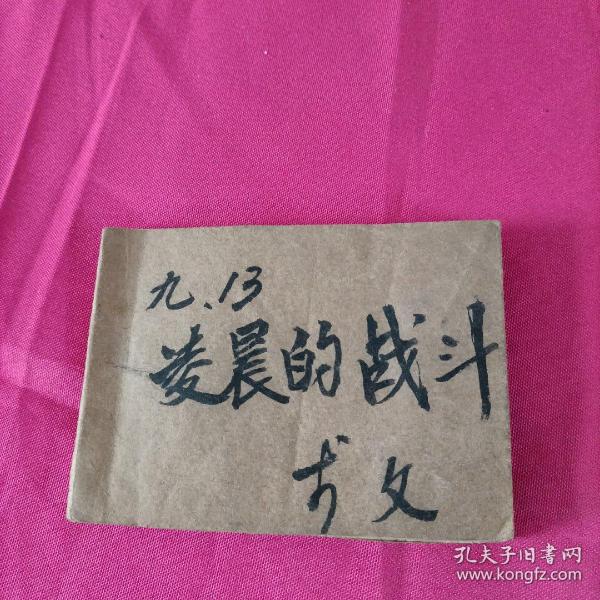 九、13
凌晨的战斗
文
孔夫子旧书网
www.kongfz.com